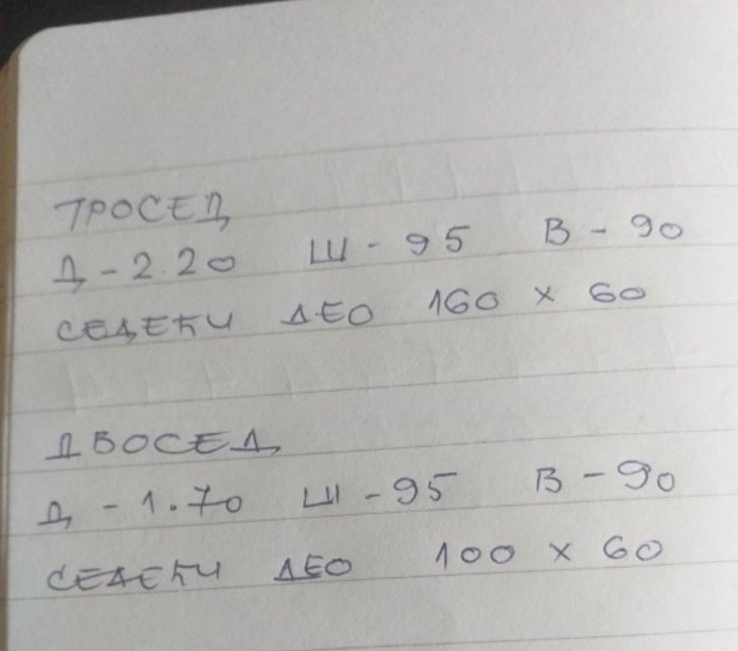 ТРОСЕД
Д - 2.20 Ш - 95 В - 90
СЕДЕЋИ ДЕО 160 x 60
ДВОСЕД
Д - 1.70 Ш - 95 В - 90
СЕДЕЋИ ДЕО 100 x 60